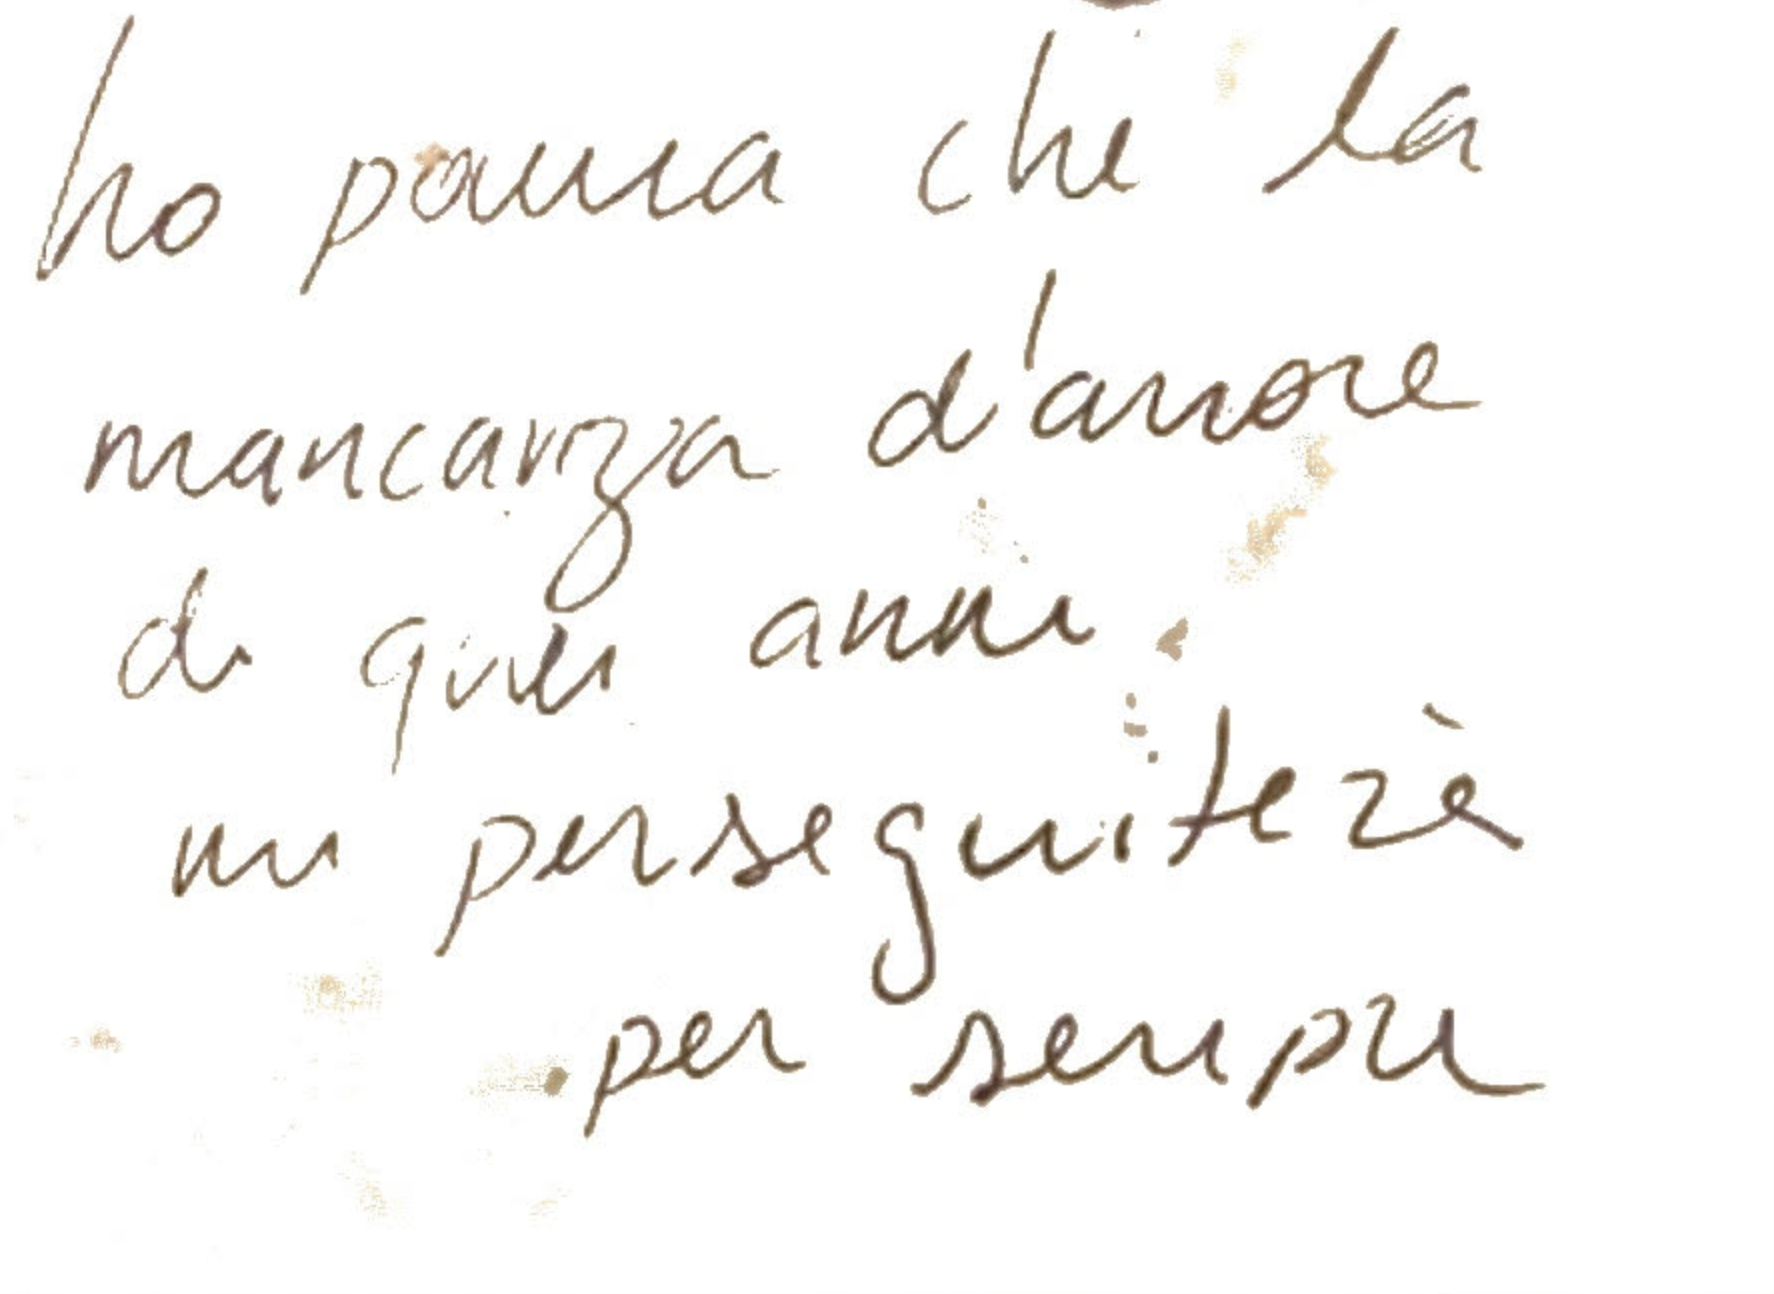 ho paura che la
mancanza d'amore
di quei anni
mi perseguiterà
per sempre